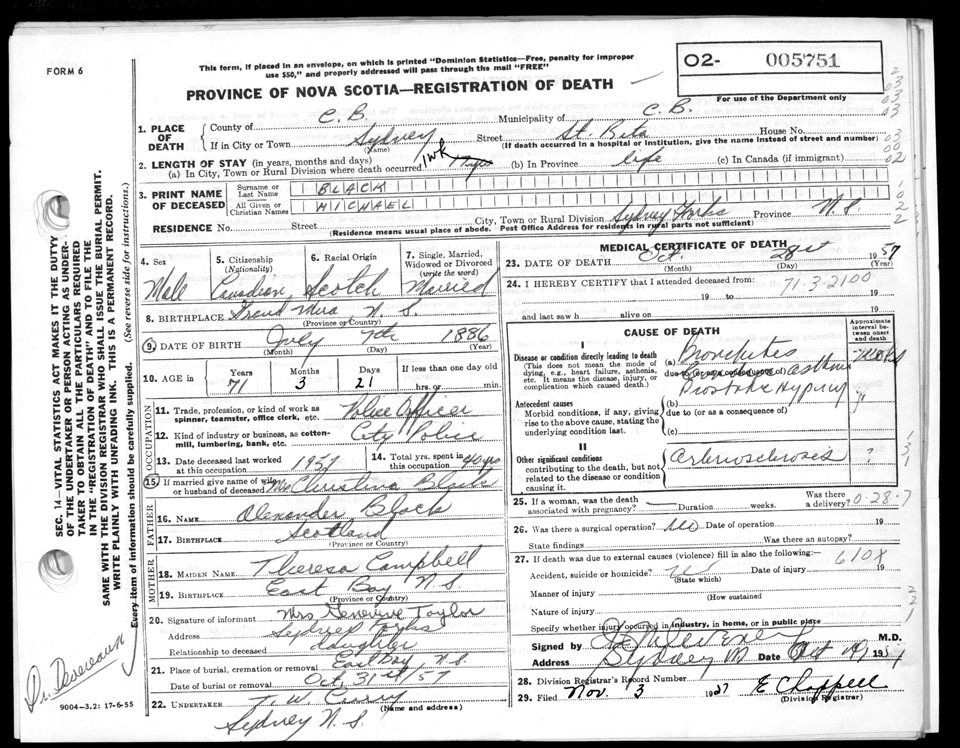 FORM 6
This form, if placed in an envelope, on which is printed "Dominion Statistics—Free, penalty for improper
use $50," and properly addressed will pass through the mail "FREE"
PROVINCE OF NOVA SCOTIA—REGISTRATION OF DEATH
O2- 005751
For use of the Department only
1. PLACE OF DEATH
County of C.B. Municipality of C.B.
If in City or Town Sydney Street St. Rita House No.
(Name) (If death occurred in a hospital or institution, give the name instead of street and number)
2. LENGTH OF STAY (in years, months and days)
(a) In City, Town or Rural Division where death occurred 1 wk (b) In Province life (c) In Canada (if immigrant)
3. PRINT NAME OF DECEASED
Surname or Last Name BLACK
All Given or Christian Names MICHAEL
RESIDENCE No. Street City, Town or Rural Division Sydney Forks Province N.S.
(Residence means usual place of abode. Post Office Address for residents in rural parts not sufficient)
4. Sex Male
5. Citizenship (Nationality) Canadian
6. Racial Origin Scotch
7. Single, Married, Widowed or Divorced (write the word) Married
8. BIRTHPLACE Grand Mira N.S.
(Province or Country)
9. DATE OF BIRTH July 7th 1886
(Month) (Day) (Year)
10. AGE in Years 71 Months 3 Days 21 If less than one day old hrs. or min.
OCCUPATION
11. Trade, profession, or kind of work as spinner, teamster, office clerk, etc. Police Officer
12. Kind of industry or business, as cotton-mill, lumbering, bank, etc. City Police
13. Date deceased last worked at this occupation 1952
14. Total yrs. spent in this occupation 40 yrs
15. If married give name of wife or husband of deceased Mrs Christina Black
FATHER
16. NAME Alexander Black
17. BIRTHPLACE Scotland
(Province or Country)
MOTHER
18. MAIDEN NAME Theresa Campbell
19. BIRTHPLACE East Bay N.S.
(Province or Country)
20. Signature of informant Mrs Genevieve Taylor
Address Sydney Forks
Relationship to deceased daughter
21. Place of burial, cremation or removal East Bay, N.S.
Date of burial or removal Oct 31st/57
22. UNDERTAKER T. W. Curry
(Name and address)
Sydney N.S.
MEDICAL CERTIFICATE OF DEATH
23. DATE OF DEATH Oct. 28 1957
(Month) (Day) (Year)
24. I HEREBY CERTIFY that I attended deceased from 71-3-2100
19 to 19
and last saw h alive on 19
CAUSE OF DEATH
Approximate interval between onset and death
I
Disease or condition directly leading to death
(This does not mean the mode of dying, e.g., heart failure, asthenia, etc. It means the disease, injury, or complication which caused death.)
(a)
due to (or as a consequence of)
Antecedent causes
Morbid conditions, if any, giving rise to the above cause, stating the underlying condition last.
(b)
due to (or as a consequence of)
(c)
II
Other significant conditions contributing to the death, but not related to the disease or condition causing it. ?
25. If a woman, was the death associated with pregnancy? Duration weeks. Was there a delivery? 0-28-7
26. Was there a surgical operation? no Date of operation 19
State findings Was there an autopsy?
27. If death was due to external causes (violence) fill in also the following:— 610X
Accident, suicide or homicide? Date of injury 19
(State which)
Manner of injury
(How sustained
Nature of injury
Specify whether injury occurred in industry, in home, or in public place
Signed by M.D.
Address Sydney Date Oct 19
28. Division Registrar's Record Number
29. Filed Nov. 3 1957 E Chappell
(Division Registrar)
SEC. 14—VITAL STATISTICS ACT MAKES IT THE DUTY
OF THE UNDERTAKER OR PERSON ACTING AS UNDER-
TAKER TO OBTAIN ALL THE PARTICULARS REQUIRED
IN THE "REGISTRATION OF DEATH" AND TO FILE THE
SAME WITH THE DIVISION REGISTRAR WHO SHALL ISSUE THE BURIAL PERMIT.
WRITE PLAINLY WITH UNFADING INK. THIS IS A PERMANENT RECORD.
Every item of information should be carefully supplied. (See reverse side for instructions.)
Dr.
9004-3.2: 17-6-55